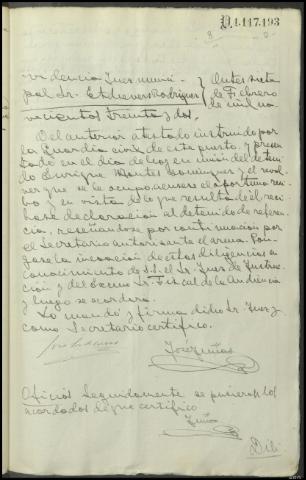 D.1.117.193
videncia Juez muni-
pal Sr. Etchevers Rodriguez
Autes siete
de Febrero
de mil no
vecientos treinta y dos.
Del anterior atestado instruido por
la Guardia civil de este puesto, y presen
tado en el dia de hoy en union del deteni
do Enrique Montes Dominguez y el revol
ver que se le ocupo, acusese el oportuno reci
bo y en vista de lo que resulta de el reci
base declaracion al detenido de referen
cia, reseñandose por continuacion por
el Secretario autorizante el arma. Pon
gase la incoacion de estas diligencias en
conocimiento de S.S. el Sr. Juez de Instruc
cion y del Ilcmo Sr. Fiscal de la Audiencia
y luego se acordara.
Lo mandó y firma dicho Sr. Juez y
como Secretario certifico.
Oficios Seguidamente se pusieron los
acordados de que certifico
Dili